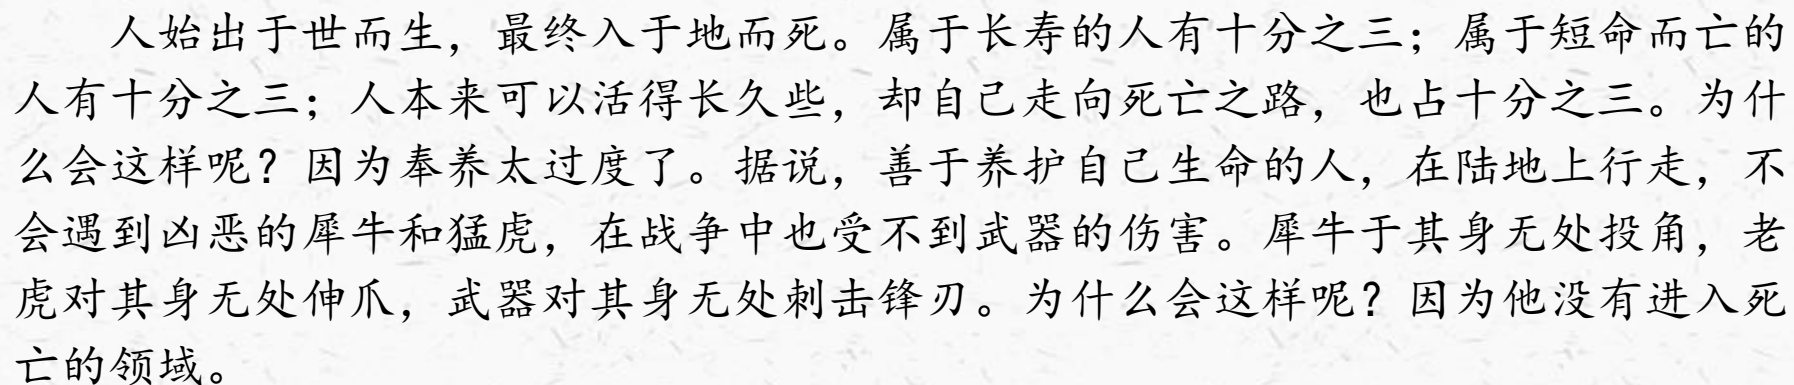 人始出于世而生，最终入于地而死。属于长寿的人有十分之三；属于短命而亡的
人有十分之三；人本来可以活得长久些，却自己走向死亡之路，也占十分之三。为什
么会这样呢？因为奉养太过度了。据说，善于养护自己生命的人，在陆地上行走，不
会遇到凶恶的犀牛和猛虎，在战争中也受不到武器的伤害。犀牛于其身无处投角，老
虎对其身无处伸爪，武器对其身无处刺击锋刃。为什么会这样呢？因为他没有进入死
亡的领域。